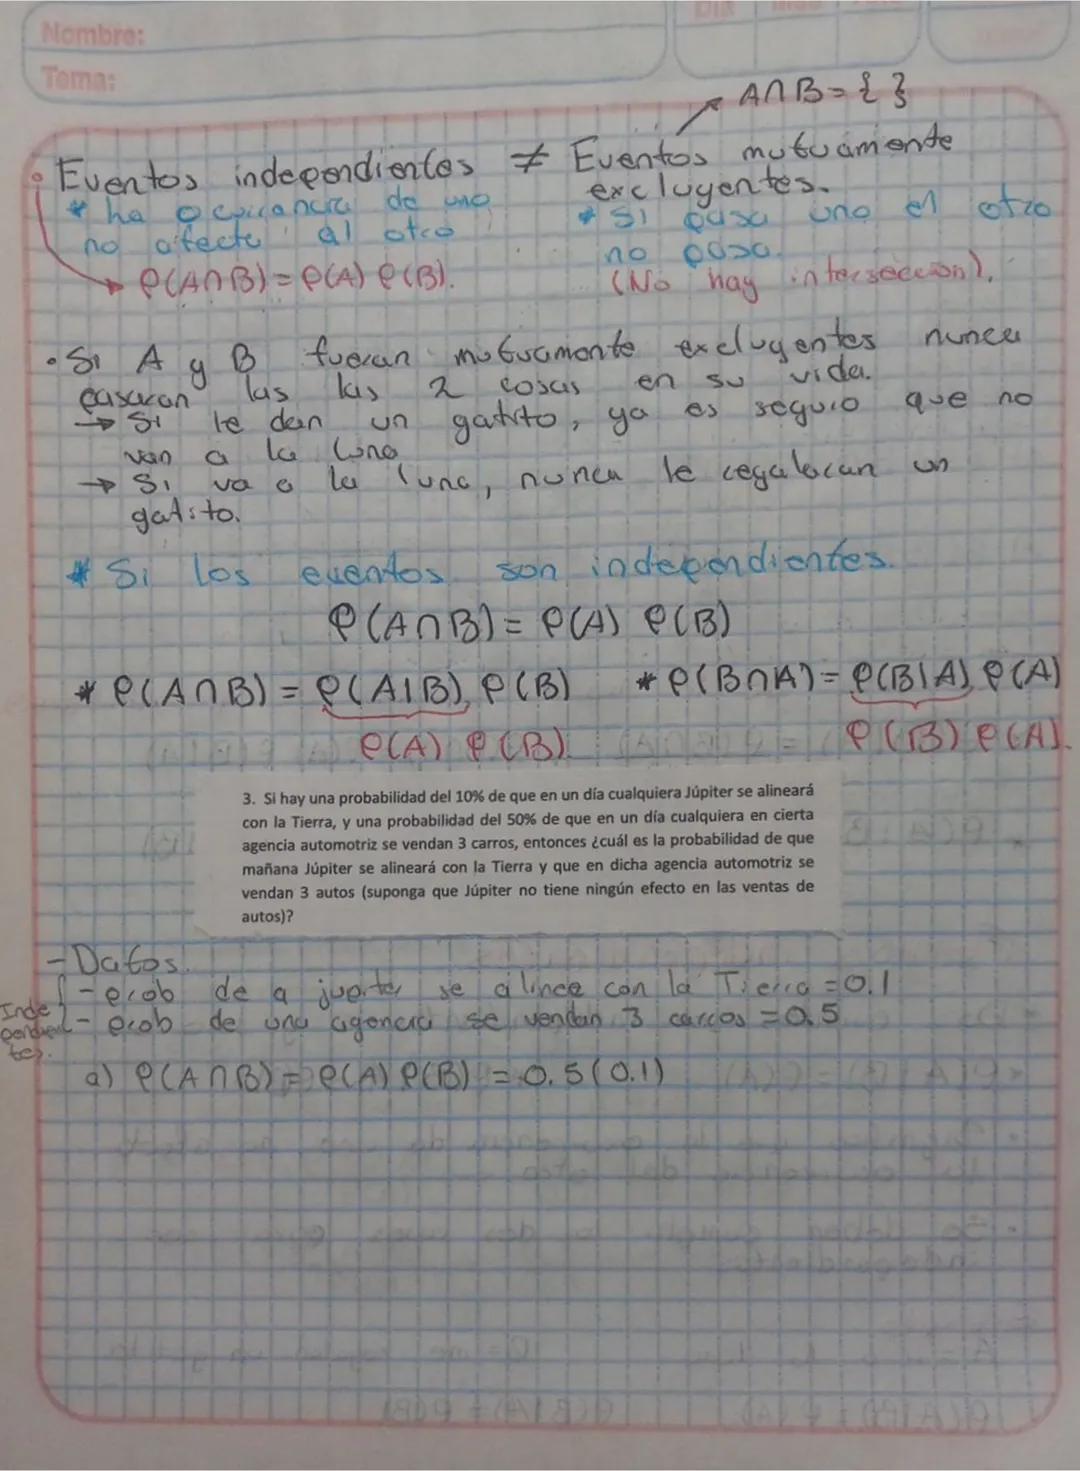 Nombre:
Tema:
A∩B={ }
• Eventos independientes ≠ Eventos mutuamente
excluyentes.
* ha ocurrancia de uno
no afecte al otro
* Si pasa uno el otro
no pasa.
→ P(A∩B)=P(A) P(B).
(No hay intersección).
• Si A y B fueran mutuamente excluyentes nunca
pasaran las las 2 cosas en su vida.
→ Si le dan un gatito, ya es seguro que no
van a la luna
→ Si va a la luna, nunca le regalaran un
gatito.
* Si los eventos son independientes.
P(A∩B)= P(A) P(B)
* P(A∩B) = P(A|B) P(B) * P(B∩A)= P(B|A) P(A)
P(A) P(B). P(B) P(A).
3. Si hay una probabilidad del 10% de que en un día cualquiera Júpiter se alineará
con la Tierra, y una probabilidad del 50% de que en un día cualquiera en cierta
agencia automotriz se vendan 3 carros, entonces ¿cuál es la probabilidad de que
mañana Júpiter se alineará con la Tierra y que en dicha agencia automotriz se
vendan 3 autos (suponga que Júpiter no tiene ningún efecto en las ventas de
autos)?
- Datos.
- prob de a jupiter se alinee con la Tierra = 0.1
- prob de una agencia se vendan 3 carros = 0.5
Inde
pendien
tes.
a) P(A∩B) = P(A) P(B) = 0.5(0.1)